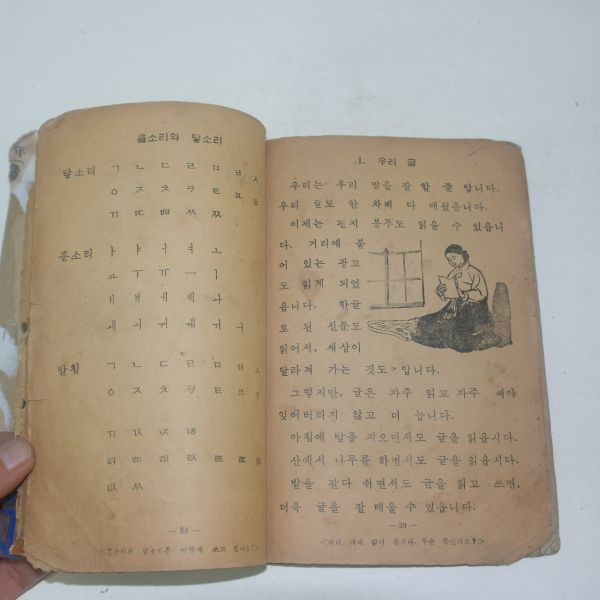 홀소리와 닿소리
닿소리 ㄱ ㄴ ㄷ ㄹ ㅁ ㅂ ㅅ
ㅇ ㅈ ㅊ ㅋ ㅌ ㅍ ㅎ
ㄲ ㄸ ㅃ ㅆ ㅉ
홀소리 ㅏ ㅑ ㅓ ㅕ ㅗ
ㅛ ㅜ ㅠ ㅡ ㅣ
ㅐ ㅒ ㅔ ㅖ ㅘ
ㅙ ㅚ ㅝ ㅞ ㅟ ㅢ
받침 ㄱ ㄴ ㄷ ㄹ ㅁ ㅂ ㅅ
ㅇ ㅈ ㅊ ㅋ ㅌ ㅍ ㅎ
ㄲ ㄳ ㄵ ㄶ
ㄺ ㄻ ㄼ ㄽ ㄾ ㄿ ㅀ
ㅄ ㅆ
— 38 —
닿소리를 어떻게 쓰고
1. 우리 글
우리는 우리 말을 잘 할 줄 압니다.
우리 글도 한 차례 다 배웠읍니다.
이제는 편지 봉투도 읽을 수 있읍니
다. 거리에 붙
어 있는 광고
도 읽게 되었
읍니다. 한글
로 된 신문도
읽어서, 세상이
달라져 가는 것도 압니다.
그렇지만, 글은 자주 읽고 자주 써야
잊어버리지 않고 더 늡니다.
아침에 밥을 지으면서도 글을 읽읍시다.
산에서 나무를 하면서도 글을 읽읍시다.
밭을 갈다 쉬면서도 글을 읽고 쓰면,
더욱 글을 잘 배울 수 있읍니다.
— 39 —
읽어 봅시다. 무슨 뜻인가요?>